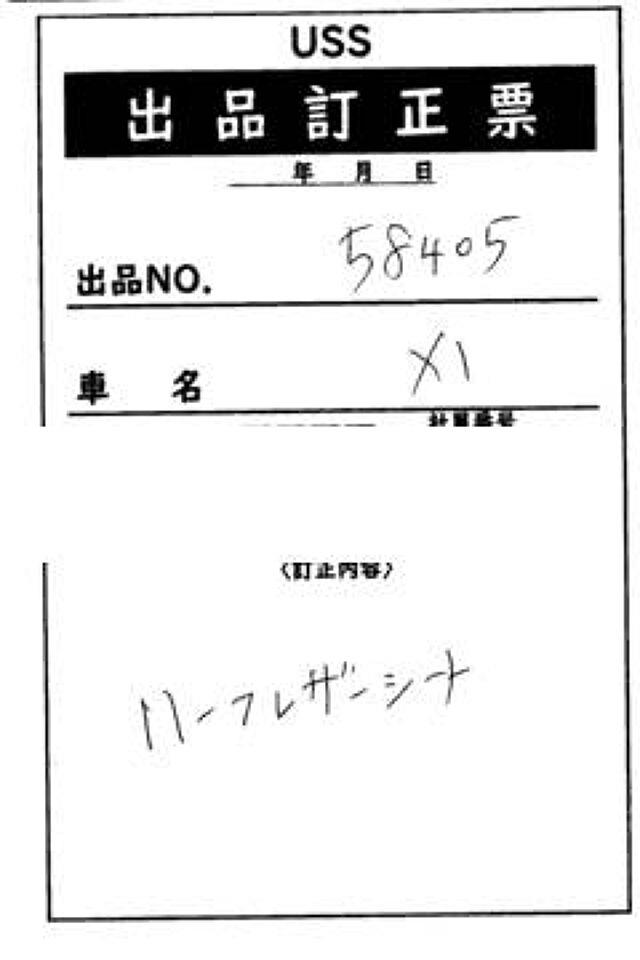 USS
出品訂正票
年 月 日
出品NO. 58405
車 名 X1
〈訂正内容〉
ハーフレザーシート